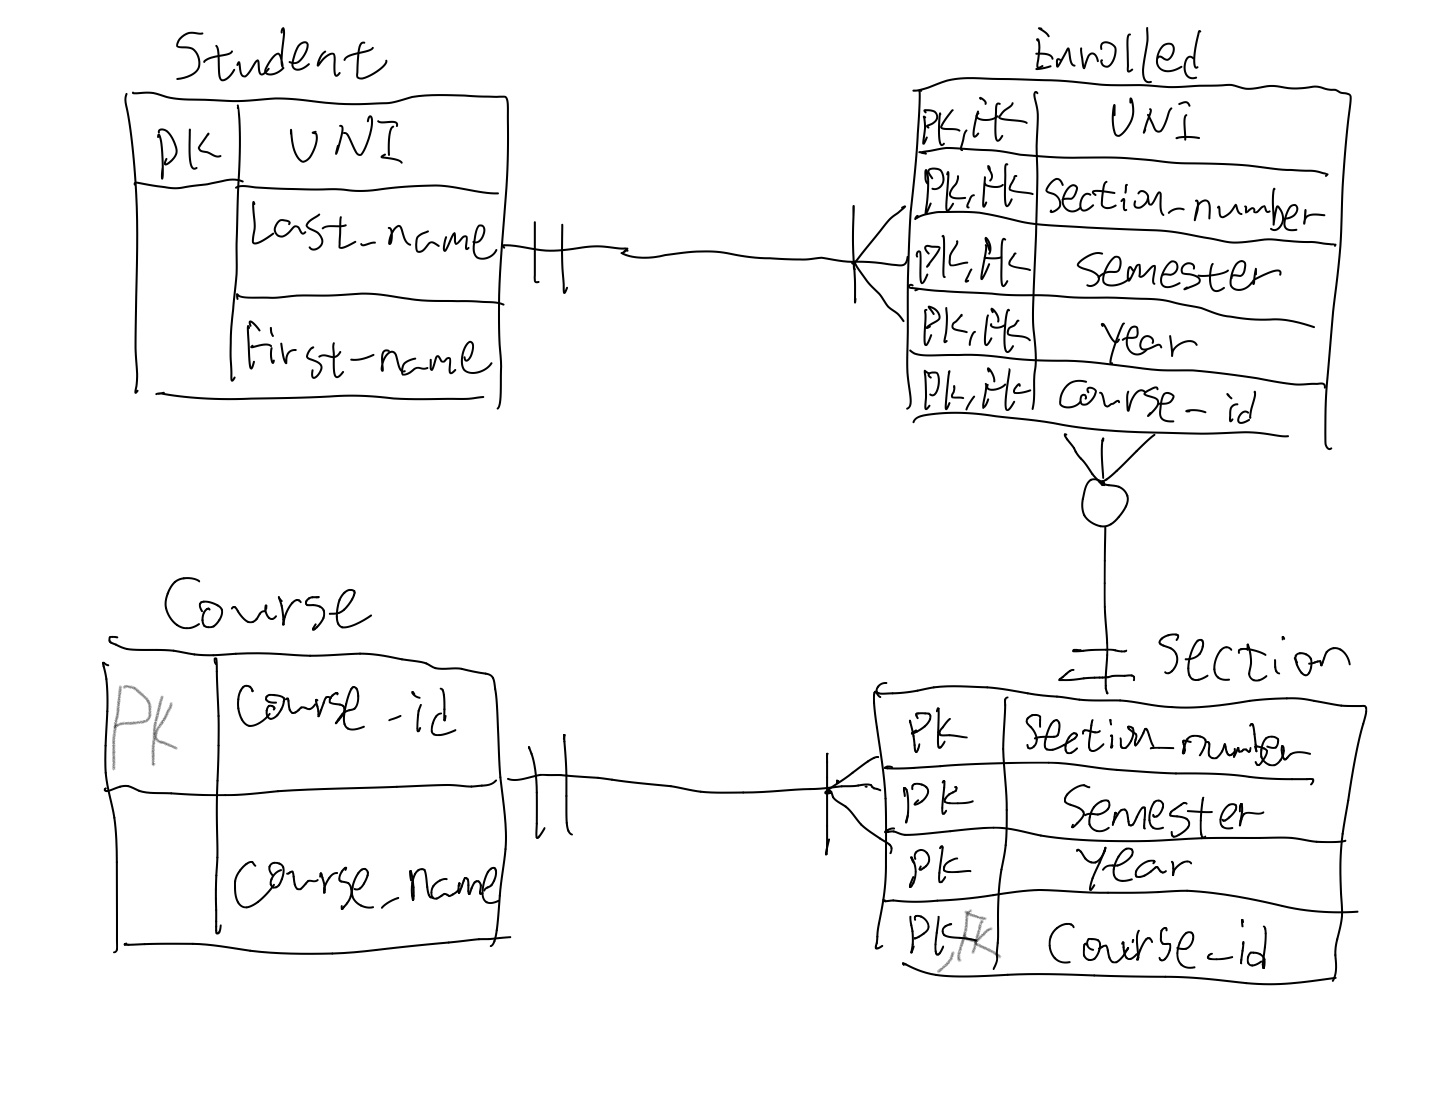 Student
PK UNI
Last_name
First-name
Enrolled
PK, FK UNI
PK, FK section_number
PK, FK semester
PK, FK year
PK, FK course_id
Course
PK course_id
course_name
Section
PK section_number
PK semester
PK year
PK, FK course_id